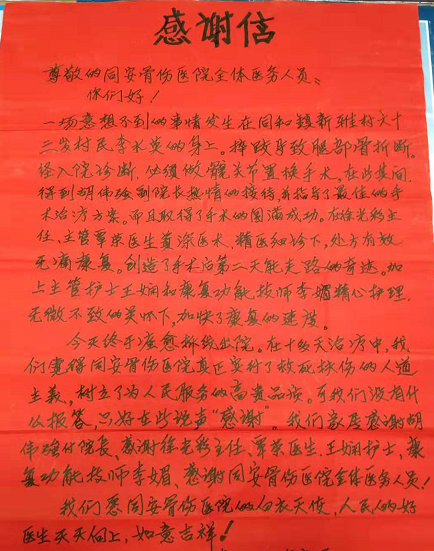 感谢信
尊敬的同安骨伤医院全体医务人员:
你们好!
一场意想不到的事情发生在同和镇新雅村六十
三岁村民李水英的身上。摔跤导致腿部骨折断。
经入院诊断,必须做髋关节置换手术。在此其间
得到胡伟强副院长热情的接待,并指导了最佳的手
术治疗方案。而且取得了手术的圆满成功。在徐光彩主
任、主管覃荣医生着深医术、精医细诊下,处方有效
无痛康复。创造了手术后第二天能走路的奇迹。加
上主管护士王娴和康复功能技师李媚精心护理.
无微不致的关怀下,加快了康复的速度。
今天终于痊愈拆线出院。在十多天治疗中,我
们觉得同安骨伤医院真正实行了救死扶伤的人道
主義,树立了为人民服务的高贵品质。而我们没有什
么报答,只好在此说声“感谢”。我们家属感谢胡
伟强付院长、感谢徐光彩主任、覃荣医生、王娴护士,康
复功能技师李媚、感谢同安骨伤医院全体医务人员!
我们愿同安骨伤医院的白衣天使,人民的好
医生天天向上,如意吉祥!